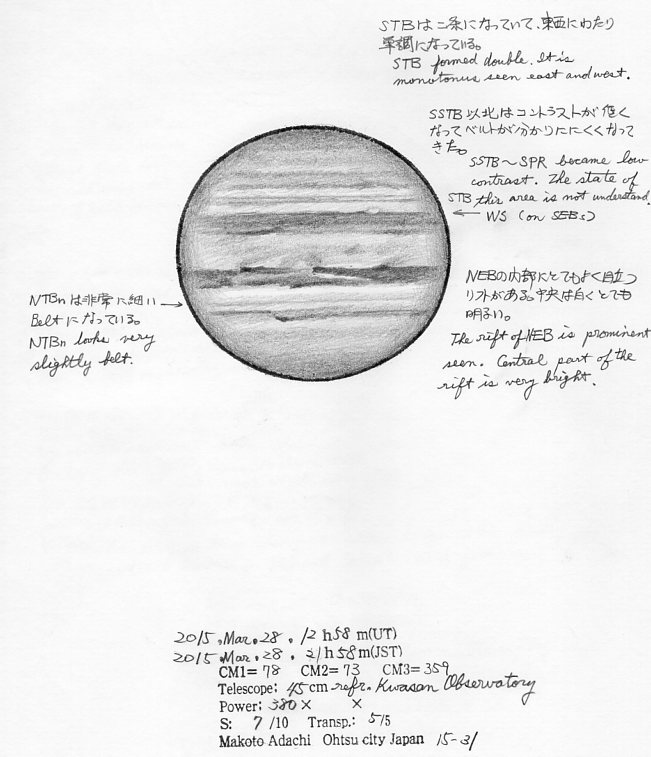 STBは二条になっていて、東西にわたり
単調になっている。
STB formed double. It is
monotonus seen east and west.
SSTB以北はコントラストが低く
なってベルトが分かりににくくなって
きた。
SSTB～SPR became low
contrast. The state of
STB this area is not understand.
← WS (on SEBs)
NEBの内部にとてもよく目立つ
リフトがある。中央は白くとても
明るい。
The rift of NEB is prominent
seen. Central part of the
rift is very bright.
NTBnは非常に細い →
Beltになっている。
NTBn looks very
slightly belt.
2015.Mar.28. 12 h 58 m(UT)
2015.Mar.28. 21 h 58 m(JST)
CM1= 78 CM2= 73 CM3= 359
Telescope: 45 cm refr. Kwasan Observatory
Power: 380 × ×
S: 7 /10 Transp.: 5/5
Makoto Adachi Ohtsu city Japan 15-31